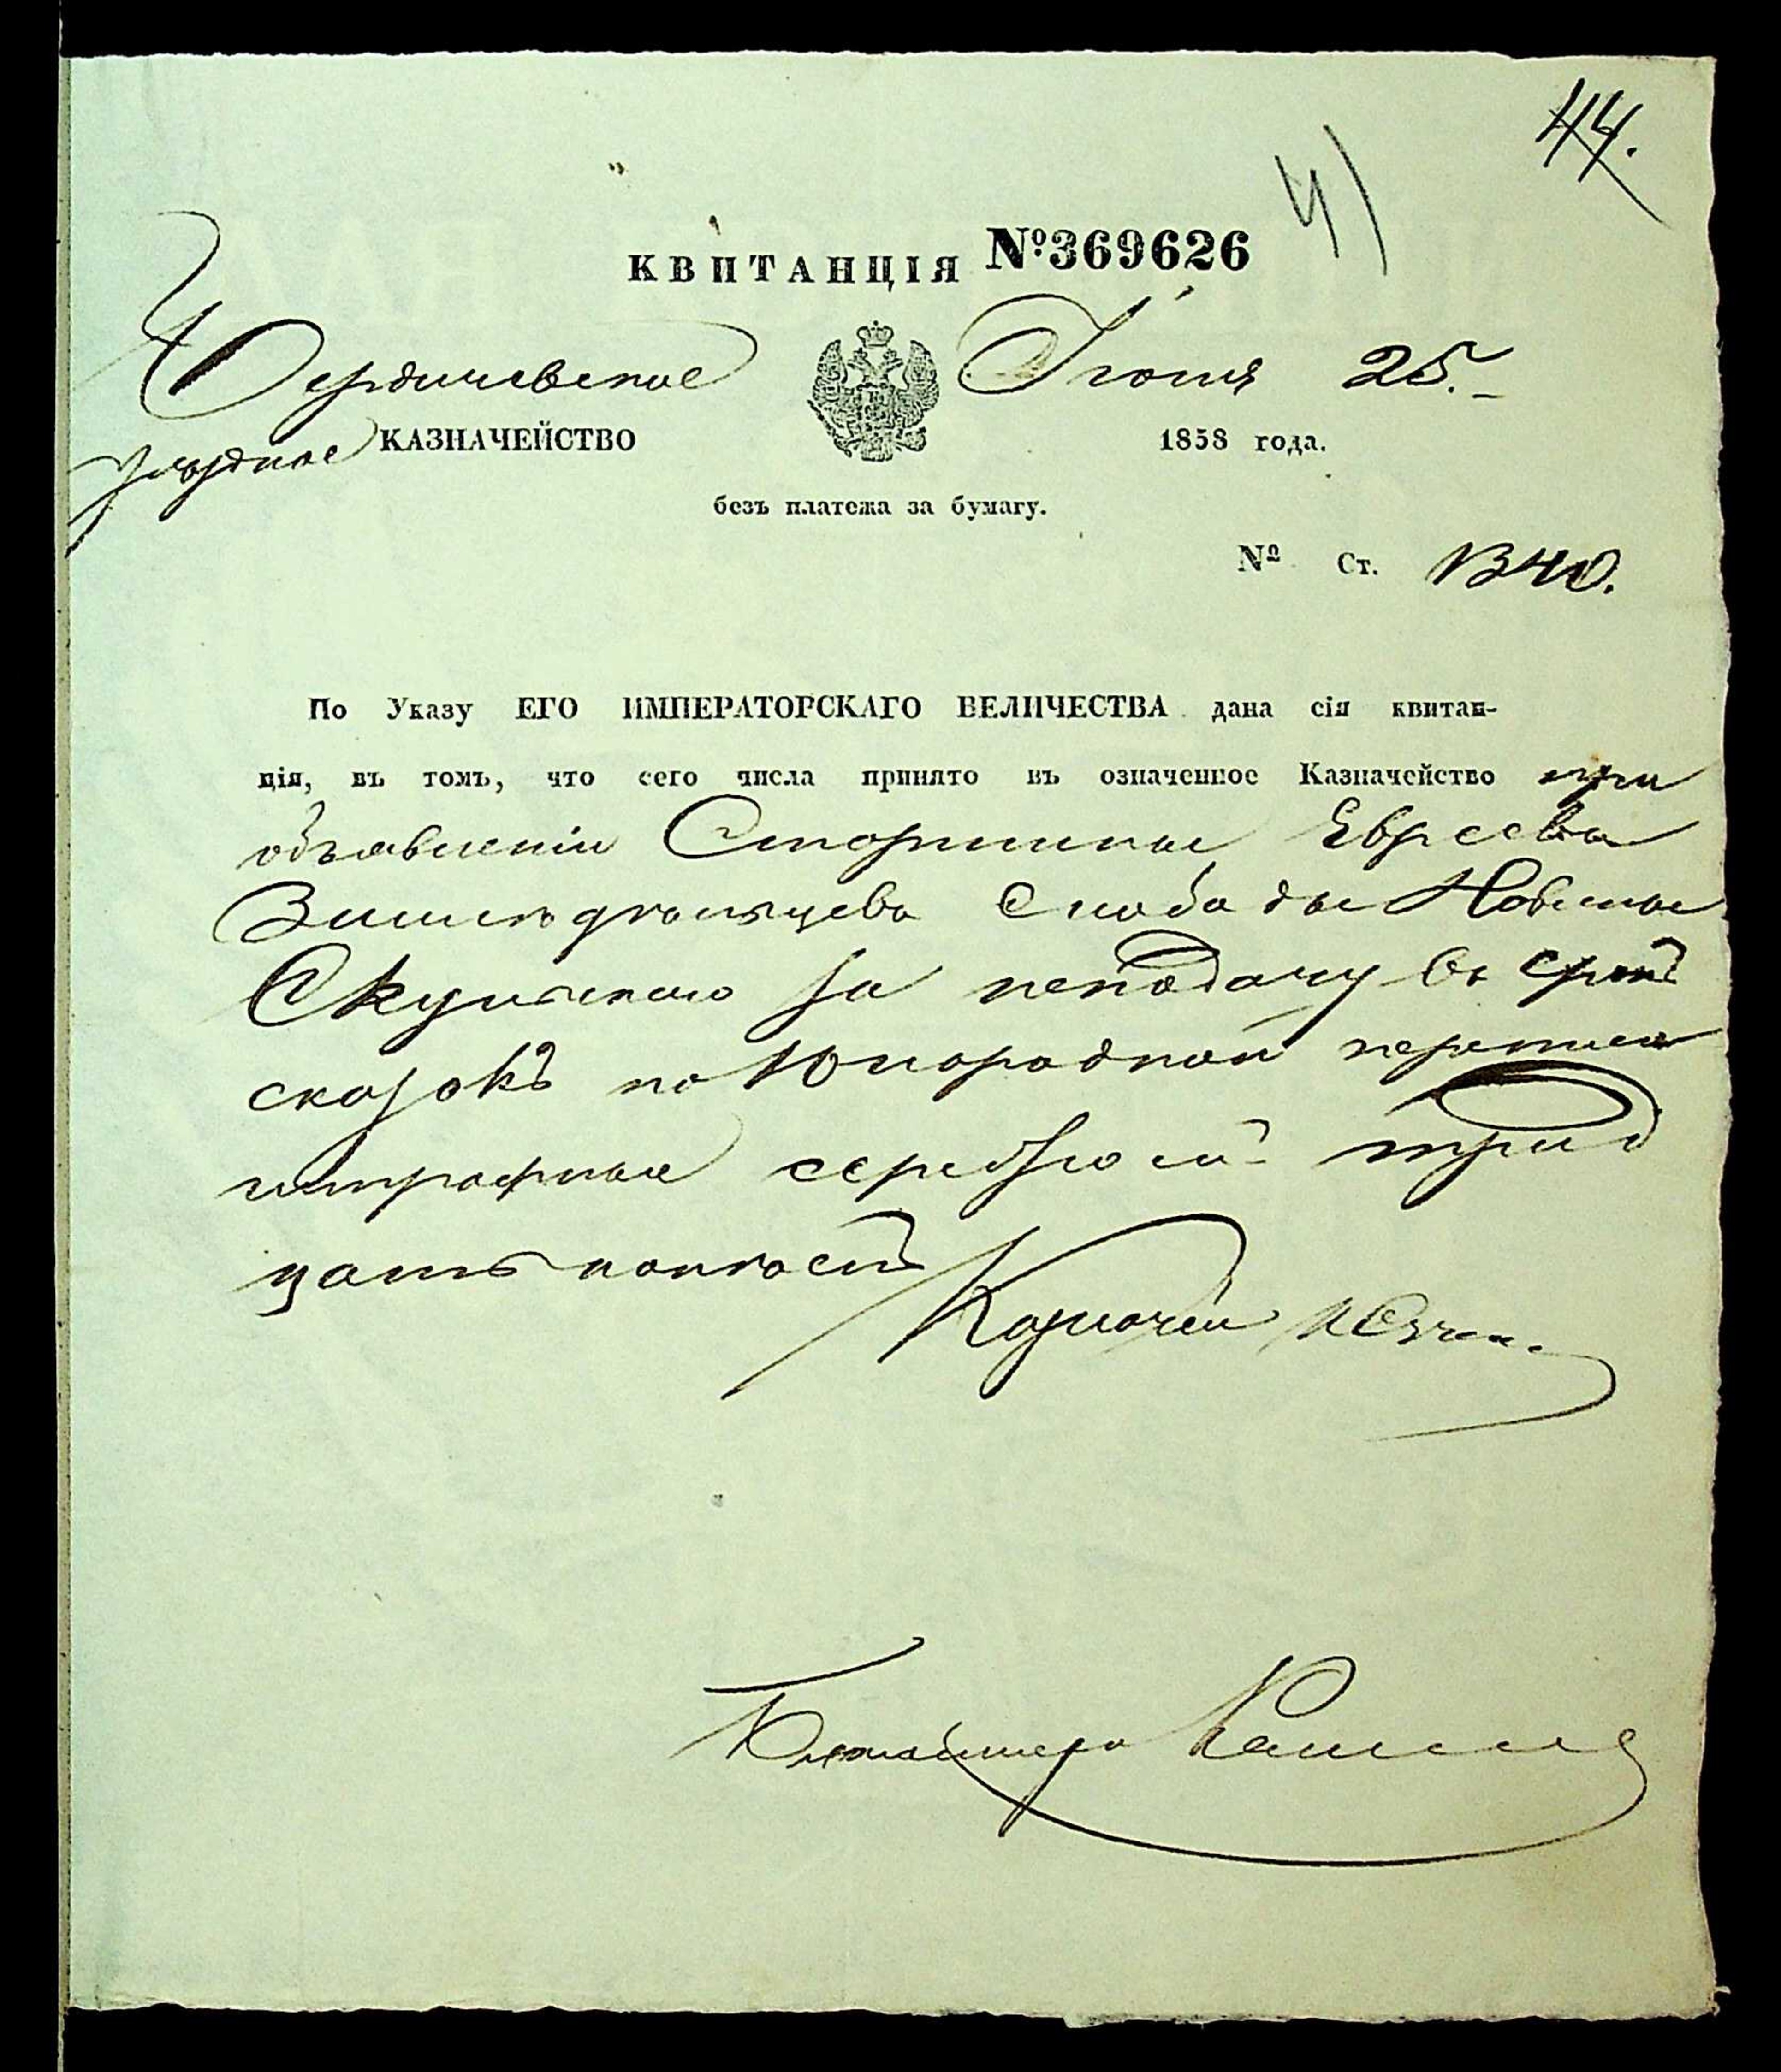 44.
41
КВИТАНЦІЯ №369626
Бердичевское Іюня 25.
уѣздное КАЗНАЧЕЙСТВО 1858 года.
безъ платежа за бумагу.
№ Ст. 1340.
По Указу ЕГО ИМПЕРАТОРСКАГО ВЕЛИЧЕСТВА дана сія квитан-
ція, въ томъ, что сего числа принято въ означенное Казначейство при
объявленіи Старшины Евреевъ
Земледѣльцевъ Слободы Новыхъ
за неподачу въ срокъ
сказокъ по 10 народной переписи
штрафныхъ серебромъ трид
цать копѣекъ
Казначей
Бухгалтеръ